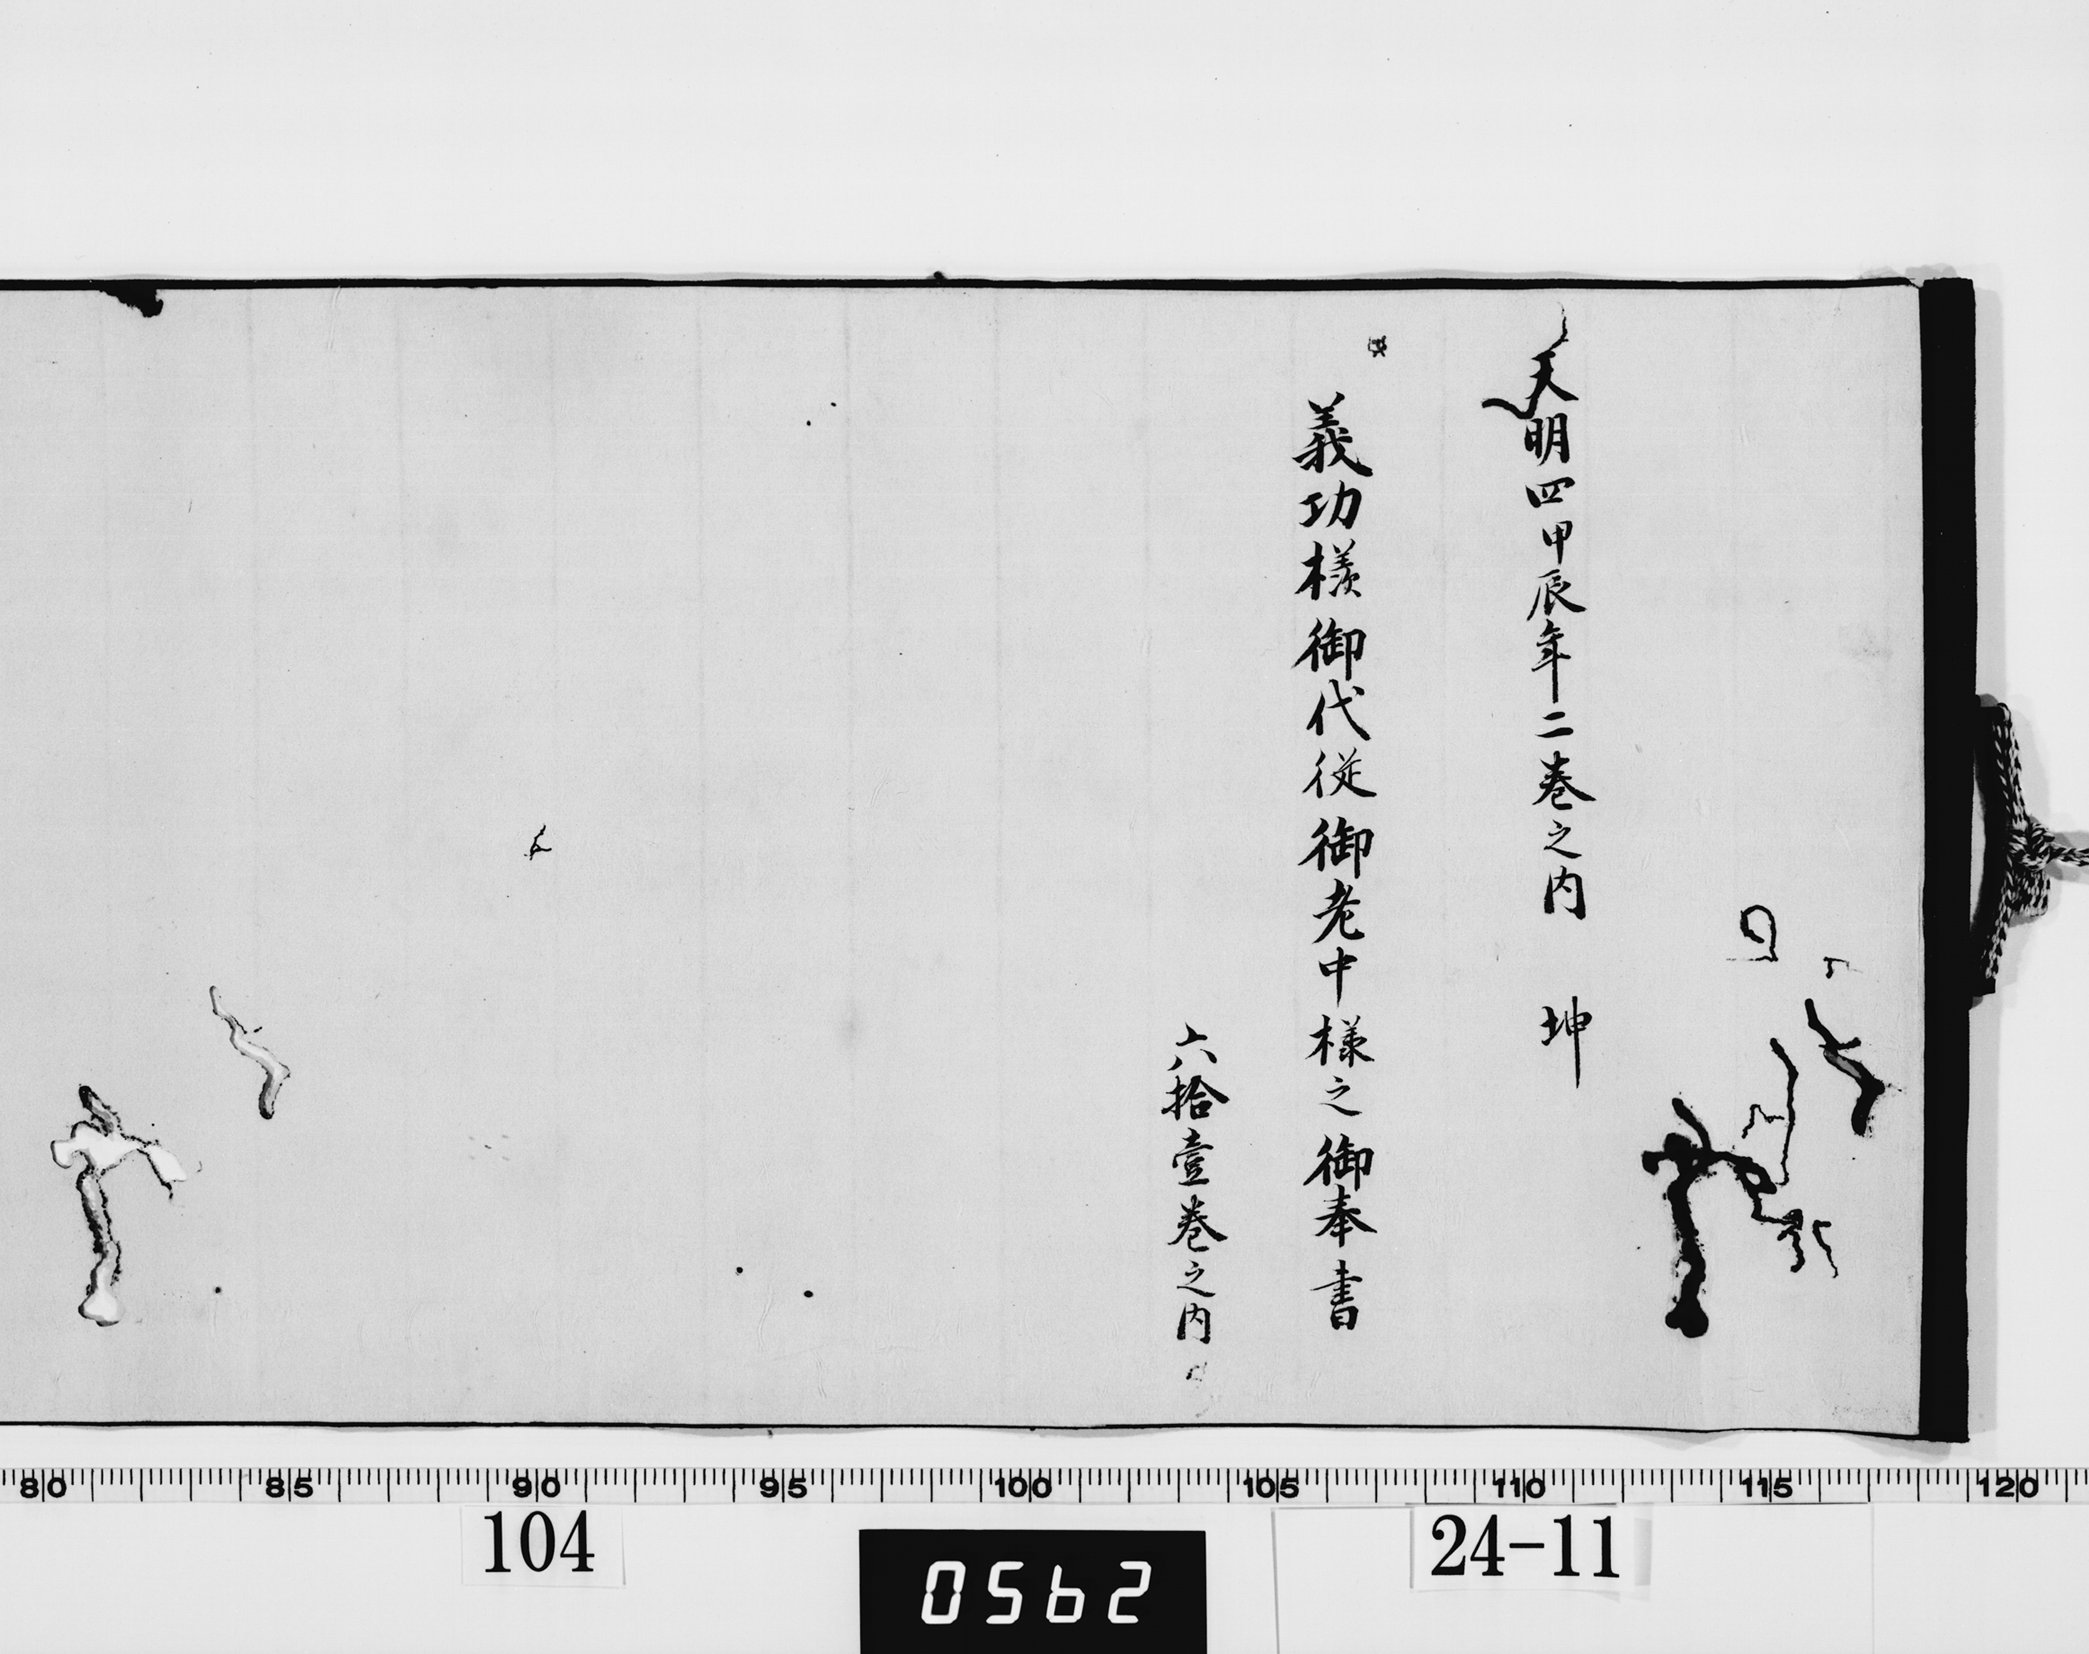 天明四甲辰年二巻之内　坤
義功様御代従御老中様之御奉書
六拾壹巻之内
80 85 90 95 100 105 110 115 120
104
0562
24-11